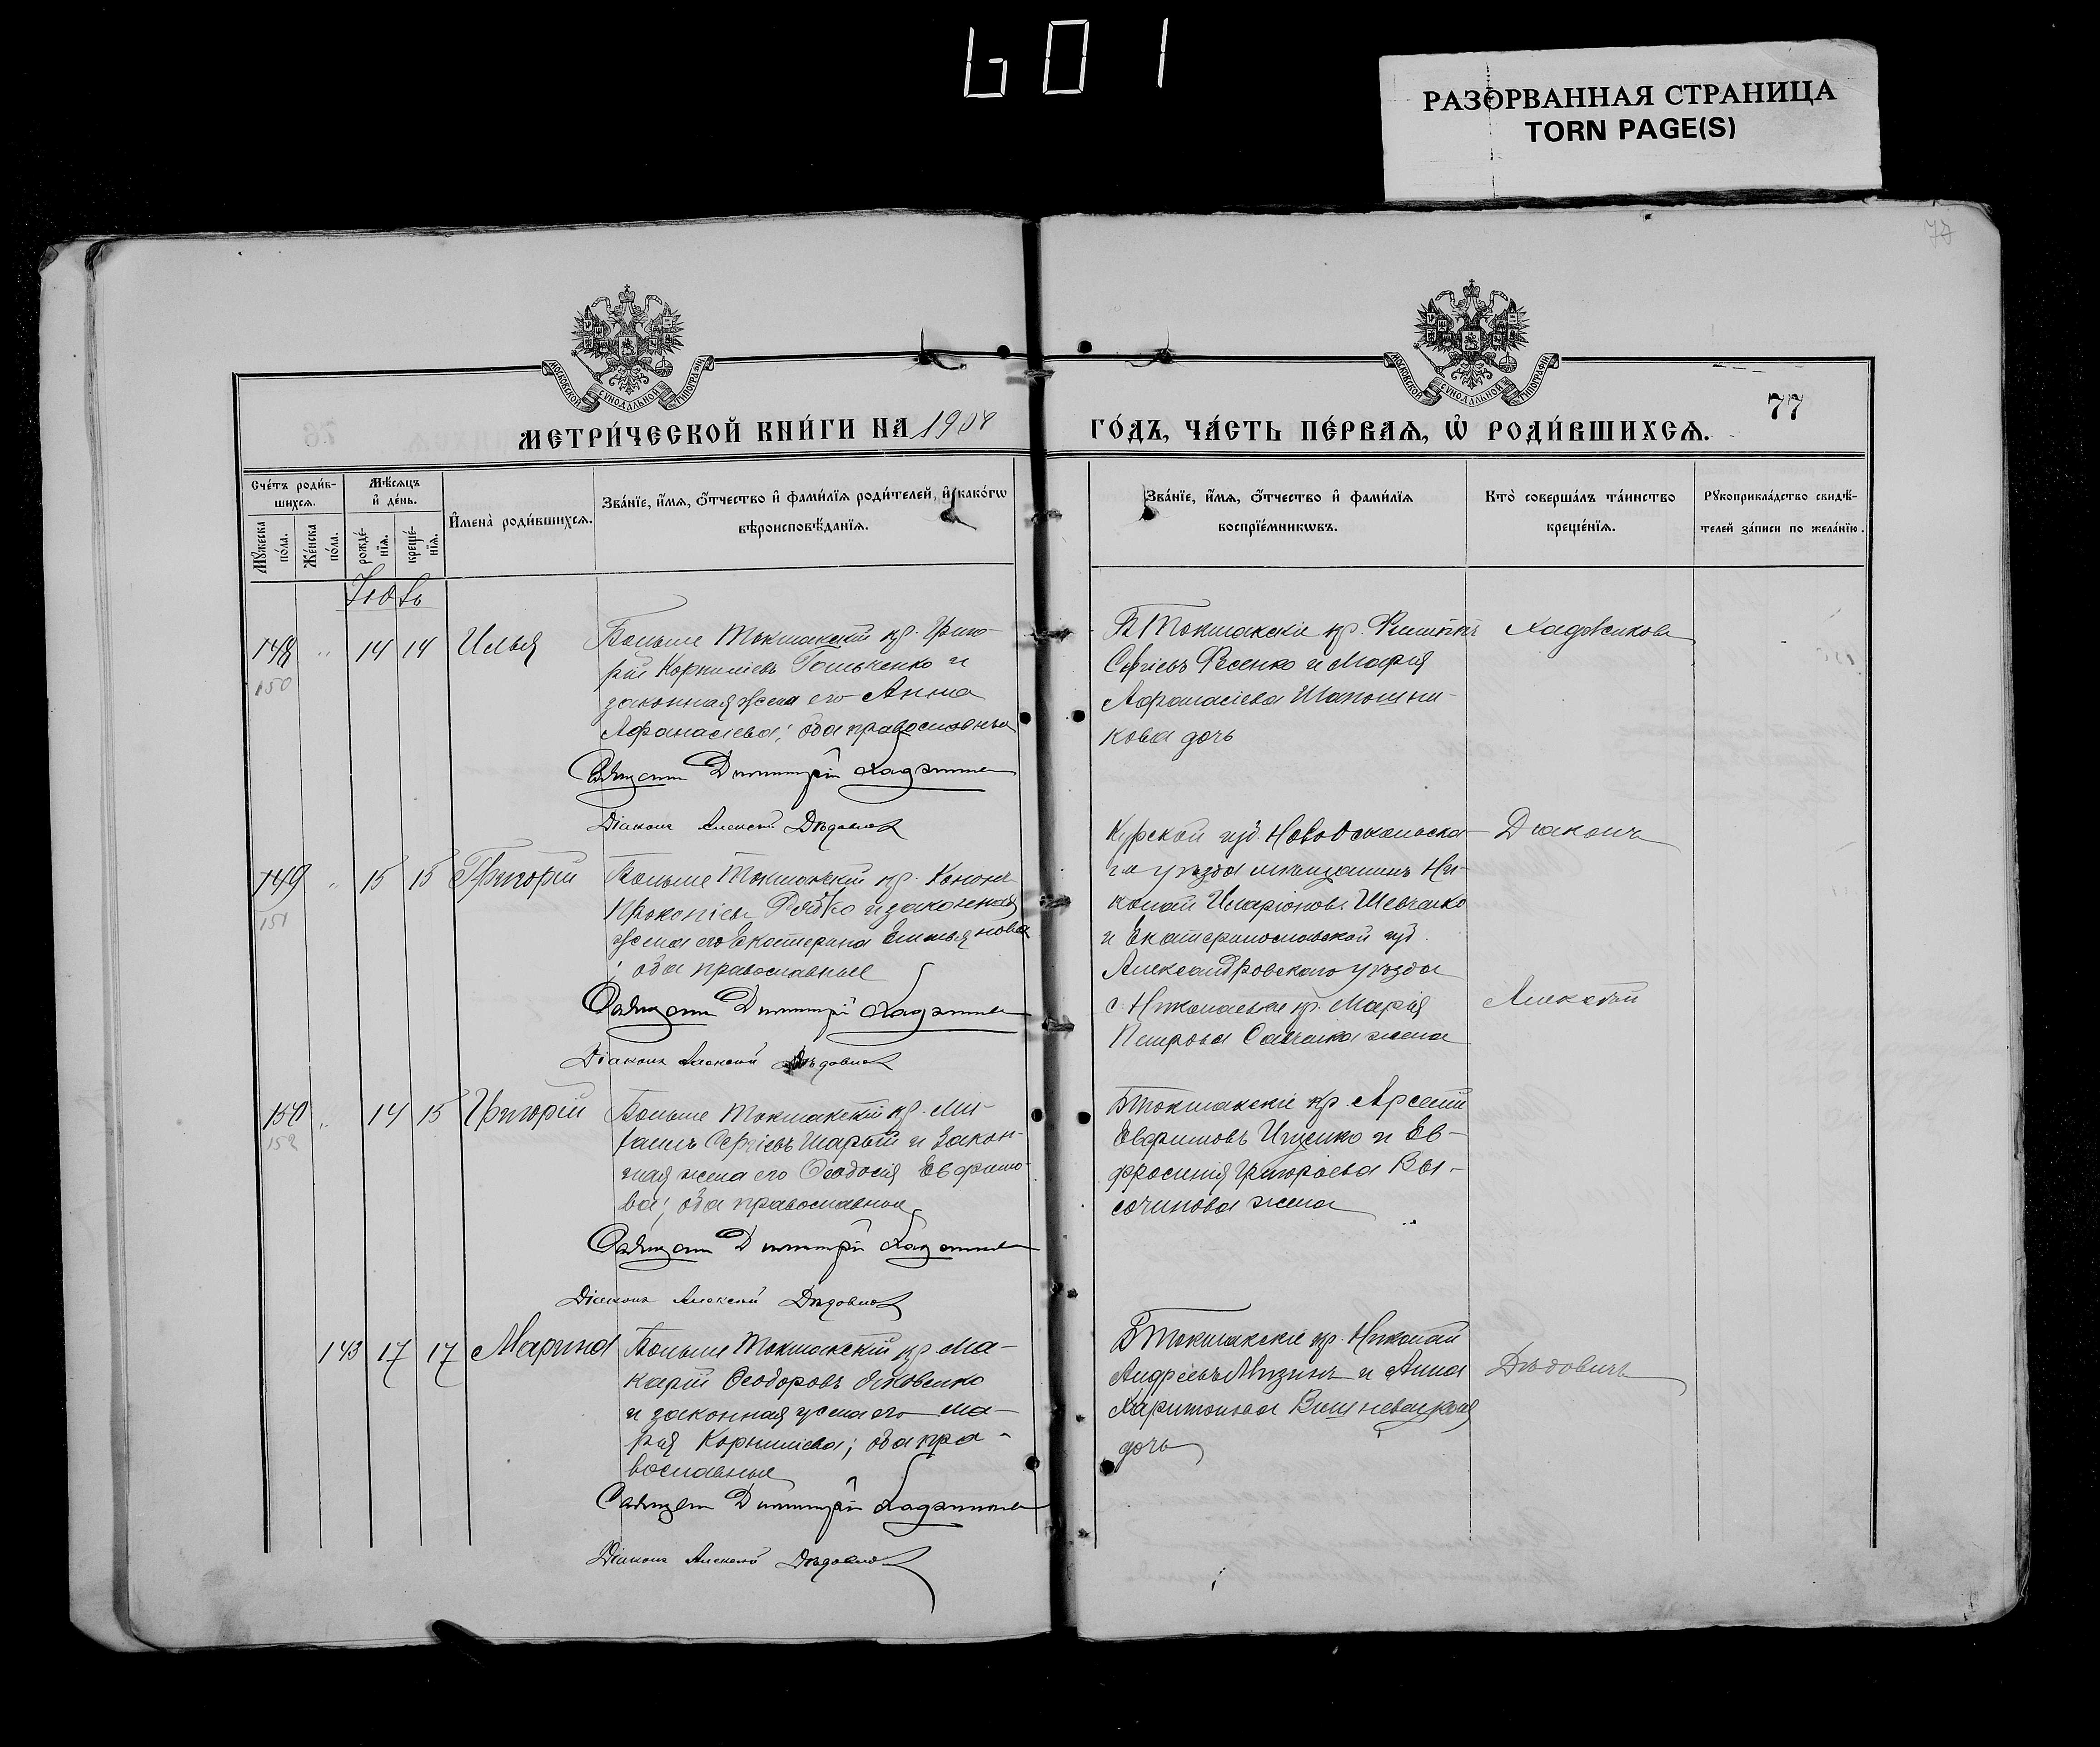 601
РАЗОРВАННАЯ СТРАНИЦА
TORN PAGE(S)
77
МОСКОВСКОЙ СѴНОДАЛЬНОЙ ТИПОГРАФІИ
МОСКОВСКОЙ СѴНОДАЛЬНОЙ ТИПОГРАФІИ
МЕТРИ́ЧЕСКОЙ КНИ́ГИ НА 1908
ГО́ДЪ, ЧА́СТЬ ПЕ́РВАѦ, Ѡ҆ РОДИ́ВШИХСѦ.
77
Сче́тъ роди́в-
шихсѧ.
Мꙋ́жеска
по́ла.
Же́нска
по́ла.
Мѣ́сѧцъ
и҆ де́нь.
рожде́-
нїѧ.
креще́-
нїѧ.
И҆мена̀ роди́вшихсѧ.
Зва́нїе, и҆́мѧ, ѻ҆́тчество и҆ фами́лїѧ роди́телей, и҆ како́гѡ
вѣроисповѣ́данїѧ.
Зва́нїе, и҆́мѧ, ѻ҆́тчество и҆ фами́лїѧ
воспрїе́мникѡвъ.
Кто̀ соверша́лъ та́инство
креще́нїѧ.
Рꙋкоприкла́дство свидѣ́-
телей за́писи по жела́нїю.
Іюль
148 " 14 14 Илья
150
Больше Токмакскій кр. Григо-
рій Корниліевъ Гольченко и
законная жена его Анна
Афанасіева; оба православные
Священ Димитрій
Діаконъ Алексій Дѣдович
Б Токмакскіе кр. Филиппъ
Сергіевъ Фесенко и Марія
Афанасіева Шапошни-
кова дочь
149 " 15 15 Григорій
151
Больше Токмакскій кр. Кононъ
Прокопіевъ и законная
жена его Екатерина Емельянова
; оба православные
Священ Димитрій
Діаконъ Алексій Дѣдович
Курской губ. Новооскольска-
го уѣзда мѣщанинъ Ни-
колай Иларіоновъ Шевченко
и Екатеринославской губ.
Александровскаго уѣзда
с. Николаевки кр. Марія
Петрова жена
Діаконъ
Алексѣй
150 " 14 15 Григорій
152
Больше Токмакскій кр. Ми-
хаилъ Сергіевъ Шарый и закон-
ная жена его Ѳеодосія Евфимо-
ва; оба православные
Священ Димитрій
Діаконъ Алексій Дѣдович
БТокмакскіе кр. Арсеній
Евфимовъ Ищенко и Ев-
фросинія Григоріева Вы-
сочинова жена
143 17 17 Марина
Больше Токмакскій кр. Ма-
карій Ѳеодоровъ Яковенко
и законная жена его Ма-
рія Корниліева; оба пра-
вославные
Священ Димитрій
Діаконъ Алексій Дѣдович
БТокмакскіе кр. Николай
Андреевъ Мизинъ и Анна
Харитонова Вишневецкая
дочь
Дѣдовичъ